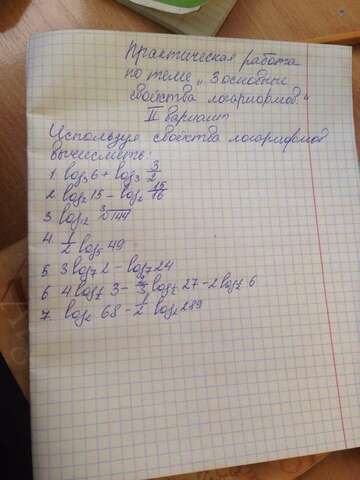 Практическая работа
по теме „ Зосновные
свойства логарифмов."
II вариант
Используя свойства логарифмов
вычислить:
1. log₃6 + log₃ 3/2
2 log₂ 15 - log₂ 15/16
3 log₁₂ ³√144
4. 1/2 log₅ 49
5 3 log₇ 2 - log₇ 24
6 4 log₂ 3 - 2/3 log₂ 27 - 2 log₂ 6
7. log₂ 68 - 1/2 log₂ 289